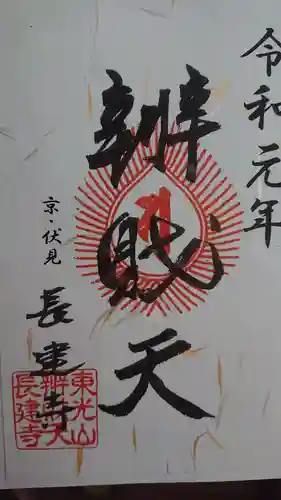 令和元年
辨財天
京・伏見
長建寺
東光山
辨財天
長建寺